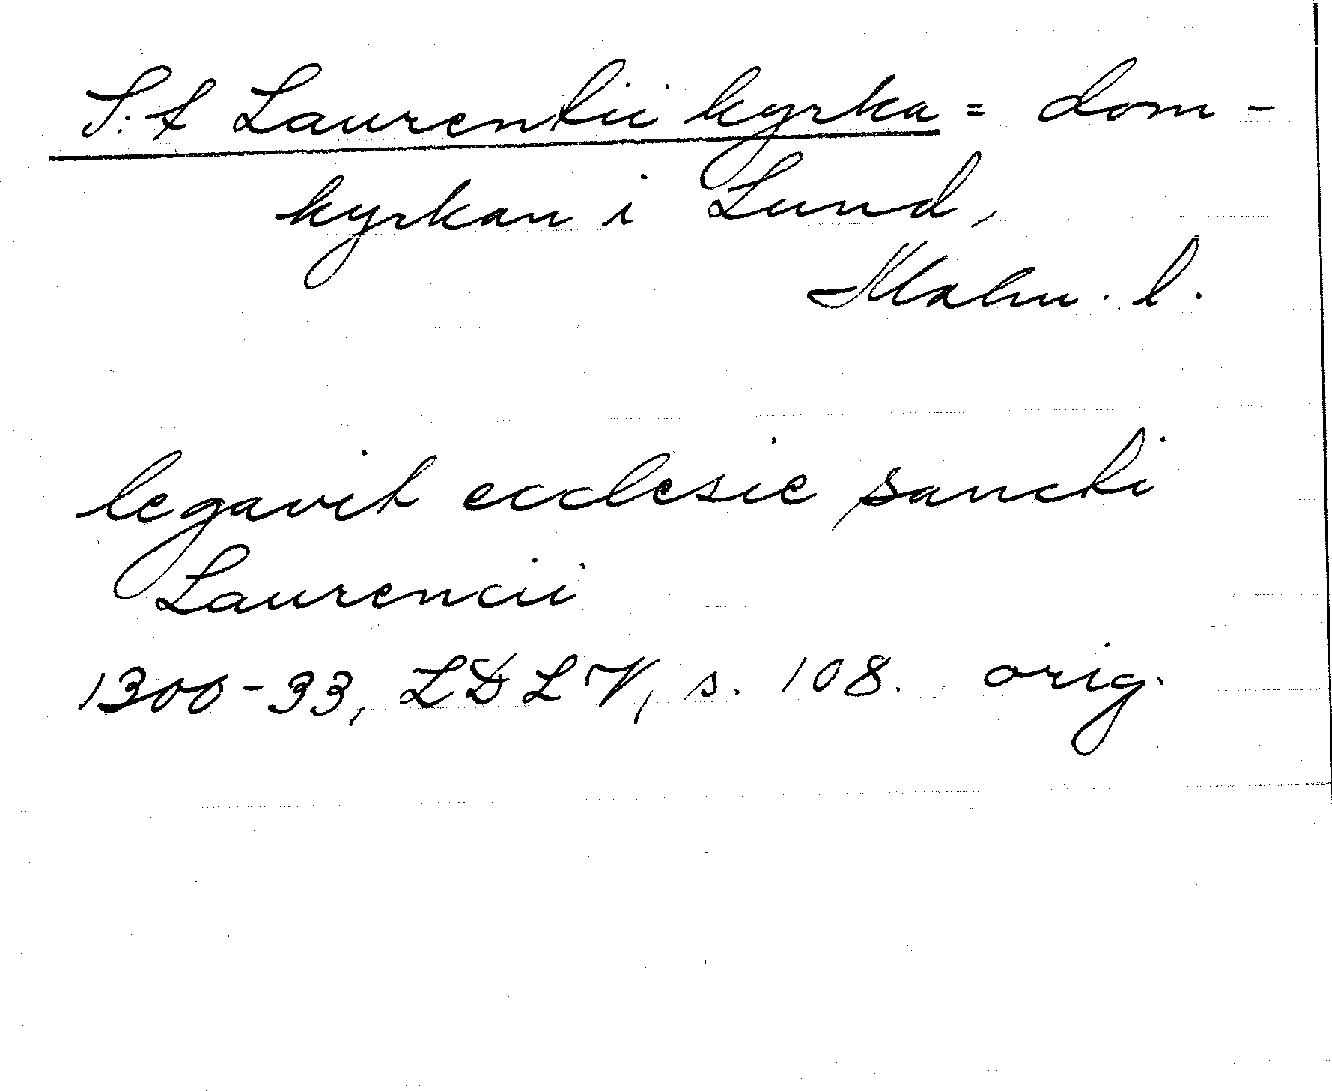 S:t Laurentii kyrka = dom-
kyrkan i Lund,
Malm. l.
legavit ecclesie sancti
Laurencii
1300-33, LDLV, s. 108. orig.